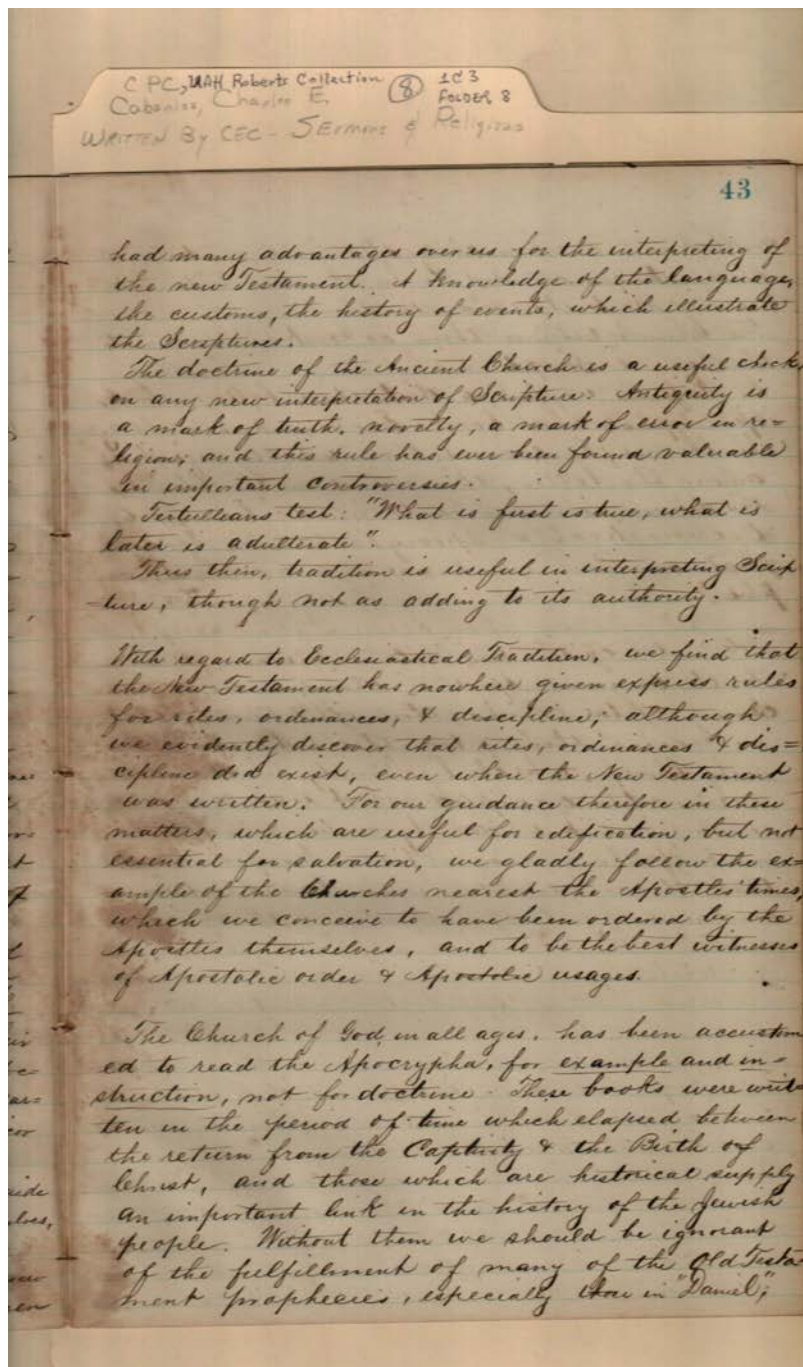 CPC, UAH Roberts Collection 8 1C3
Cabaniss, Charles E. FOLDER 8
WRITTEN By CEC - SERMONS & Religious
43
had many advantages over us for the interpreting of
the new Testament. A knowledge of the language,
the customs, the history of events, which illustrate
the Scriptures.
The doctrine of the Ancient Church is a useful check,
on any new interpretation of Scripture. Antiquity is
a mark of truth, novelty, a mark of error in re=
ligion; and this rule has ever been found valuable
in important controversies.
Tertulleans test: "What is first is true, what is
later is adulterate".
Thus then, tradition is useful in interpreting Scrip
-ture, though not as adding to its authority.
With regard to Ecclesiastical Tradition, we find that
the New Testament has nowhere given express rules
for rites, ordinances, & discipline; although
we evidently discover that rites, ordinances & dis=
cipline did exist, even when the New Testament
was written. For our guidance therefore in these
matters, which are useful for edification, but not
essential for salvation, we gladly follow the ex=
ample of the Churches nearest the Apostles' times,
which we conceive to have been ordered by the
Apostles themselves, and to be the best witnesses
of Apostolic order & Apostolic usages.
The Church of God, in all ages, has been accustom
ed to read the Apocrypha, for example and in=
struction, not for doctrine. These books were writ
ten in the period of time which elapsed between
the return from the Captivity & the Birth of
Christ, and those which are historical supply
an important link in the history of the Jewish
people. Without them we should be ignorant
of the fulfillment of many of the Old Testa
ment prophecies, especially those in "Daniel";